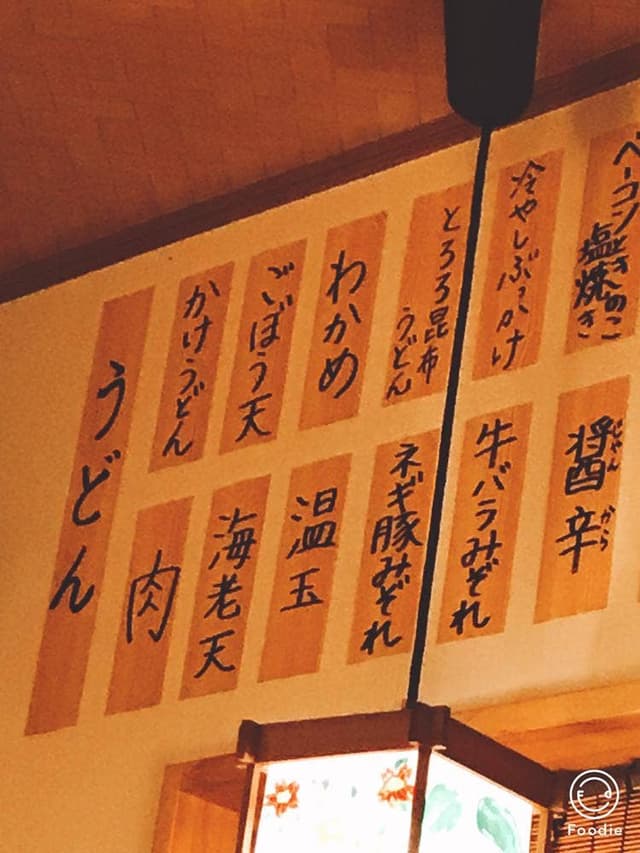 うどん
かけうどん
ごぼう天
わかめ
とろろ昆布
うどん
冷やしぶっかけ
ベーコンときのこ
塩焼き
肉
海老天
温玉
ネギ豚みぞれ
牛バラみぞれ
醤辛
じゃん
から
Foodie